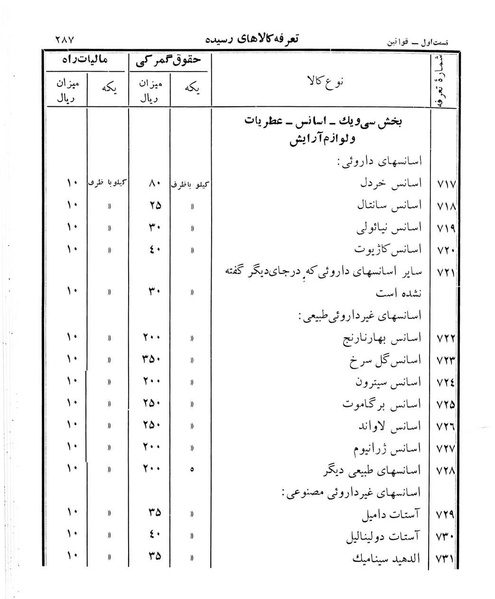 قسمت اول ــ قوانین تعرفه کالاهای رسیده ۲۸۷
شمارهٔ تعرفه نوع کالا حقوق گمرکی مالیات راه
یکه میزان ریال یکه میزان ریال
بخش سی‌ویک ــ اسانس ــ عطریات
و لوازم آرایش
اسانسهای داروئی:
۷۱۷ اسانس خردل کیلو باظرف ۸۰ کیلو با ظرف ۱۰
۷۱۸ اسانس سانتال » ۲۵ » ۱۰
۷۱۹ اسانس نیائولی » ۳۰ » ۱۰
۷۲۰ اسانس کاژپوت » ۴۰ » ۱۰
۷۲۱ سایر اسانسهای داروئی که درجای دیگر گفته
نشده است » ۳۰ » ۱۰
اسانسهای غیرداروئی طبیعی:
۷۲۲ اسانس بهارنارنج » ۲۰۰ » ۱۰
۷۲۳ اسانس گل سرخ » ۳۵۰ » ۱۰
۷۲۴ اسانس سیترون » ۲۰۰ » ۱۰
۷۲۵ اسانس برگاموت » ۲۵۰ » ۱۰
۷۲۶ اسانس لاواند » ۲۵۰ » ۱۰
۷۲۷ اسانس ژرانیوم » ۲۰۰ » ۱۰
۷۲۸ اسانسهای طبیعی دیگر » ۲۰۰ » ۱۰
اسانسهای غیرداروئی مصنوعی:
۷۲۹ آستات دامیل » ۳۵ » ۱۰
۷۳۰ آستات دولینالیل » ۴۰ » ۱۰
۷۳۱ الدهید سینامیك » ۳۵ » ۱۰